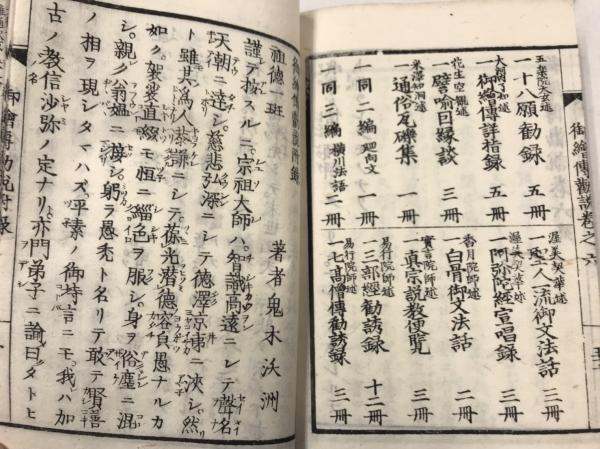 御繪傳勸説卷之六
五乘院大㳒述
一十八願勸録 五冊
大嶋了和述
一御繪傳詳梧録 五冊
花生空觀述
一譬喻因縁談 三冊
米澤知洞述
一通俗瓦礫集 一冊
一同二編 廻向文 一冊
一同三編 横川法語 二冊
渥美契華述
一聖人一流御文法話 三冊
渥美契華述
一阿弥陀經宣唱録 三冊
香月院師述
一白骨御文法話 二冊
實言院師述
一真宗説教便覧 三冊
易行院師述
一三部經勸誘録 十二冊
易行院師述
一七高僧傳勸誘録 三冊
祖德一班
著者鬼木沃洲
謹テ按スルニ宗祖大師ハ智識高遠ニシテ聲名
天朝ニ達シ慈悲弘深ニシテ德澤京東ニ浹シ然
ト雖其爲人恭謙ニシテ葆光潜德容貌愚ナルカ
如ク袈裟直綴モ恒ニ緇色ヲ服シ身ヲ俗塵ニ混
シ親ク翁媼ニ接シ躬ラ愚禿ト名リテ敢テ賢善
ノ相ヲ現シタマハズ平素ノ御持言ニモ我ハ加
古ノ教信沙弥ノ定ナリ亦門弟子ニ諭曰タトヒ
御繪傳勸説附録